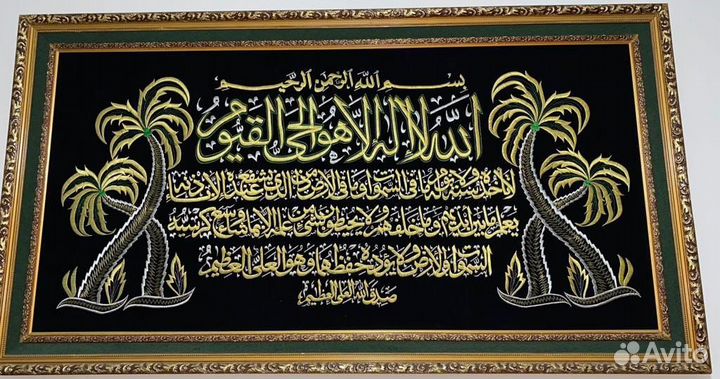 بسم الله الرحمن الرحيم
الله لا إله إلا هو الحي القيوم
لا تأخذه سنة ولا نوم له ما في السموات وما في الأرض من ذا الذي يشفع عنده إلا بإذنه
يعلم ما بين أيديهم وما خلفهم ولا يحيطون بشيء من علمه إلا بما شاء وسع كرسيه
السموات والأرض ولا يؤده حفظهما وهو العلي العظيم
صدق الله العلي العظيم
Avito